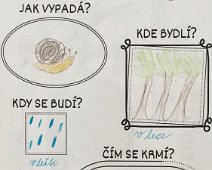 JAK VYPADÁ?
KDE BYDLÍ?
KDY SE BUDÍ?
v lese
v dešti
ČÍM SE KRMÍ?